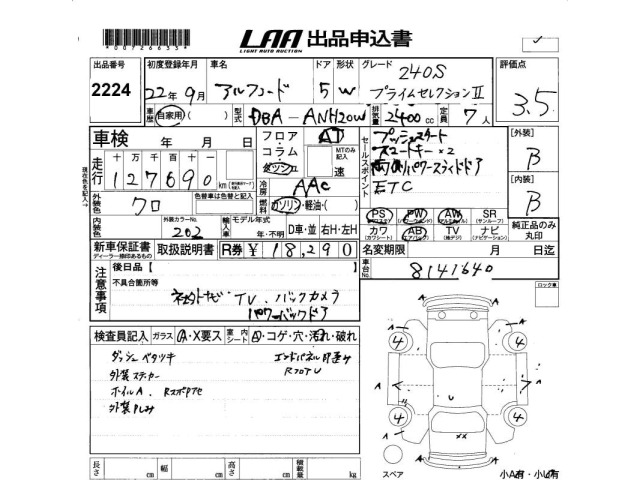 *00726633*
LAA 出品申込書
LIGHT AUTO AUCTION
出品番号 初度登録年月 車名 ドア 形状 グレード 評価点
2224 22年 9月 アルファード 5 W 240S
プライムセレクションⅡ 3.5
車歴 自家用 ( ) 型式 DBA-ANH20W 排気量 2400cc 定員 7人
車検 年 月 日 フロア AT セールスポイント プッシュスタート [外装]
コラム MTのみ記入 スマートキー×2 B
走行 十 万 千 百 十 ダッシュ 速 両側パワースライドドア
127690 冷房 AAC ETC [内装]
外装色 クロ 色替車は色替と記入 燃料 ガソリン・軽油・( ) B
内装色 外装カラーNo. 202 輸入車 モデル年式 年・不明 D車・並 右H・左H
PS PW AW SR (サンルーフ)
カワ (カワシート) AB (エアバッグ) TV (テレビ) ナビ (ナビゲーション) 純正品のみ丸印
新車保証書 ディーラー捺印あるもの 取扱説明書 R券 ¥18,290 名変期限 月 日迄
注意事項 後日品【 】 車台No. 8141640
不具合箇所等
ネオトナビ TV バックカメラ
パワーバックドア
ロック車
検査員記入 ガラス A・X要ス 室内シート A・コゲ・穴・汚れ・破れ
ダッシュ ベタツキ
外装ステッカー
ホイルA.
長さ cm 幅 cm 高さ cm 積載量 kg
スペア 小A有・小U有